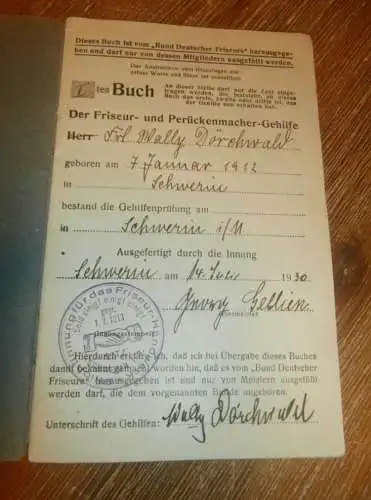 Dieses Buch ist vom „Bund Deutscher Friseure" herausgege-
ben und darf nur von dessen Mitgliedern ausgefüllt werden.
Das Ausstreichen oder
Worte und Sätze ist
1. tes Buch
An dieser Stelle darf nur die Zahl einge-
tragen werden, die
Buch das erste, zweite oder dritte ist, das
der Gehilfe nun erhalten hat.
Der Friseur- und Perückenmacher-Gehilfe
Herr Frl. Wally Dörchwald
geboren am 7 Januar 1912
in Schwerin
bestand die Gehilfenprüfung am
in Schwerin i/M
Ausgefertigt durch die Innung
Schwerin am 14. Juli 1930
Georg Gellien
Obermeister
Innung für das Friseur-Hand
Innungsstempel
Hierdurch erkläre ich, daß ich bei Übergabe dieses Buches
damit bekannt gemacht worden bin, daß es vom „Bund Deutscher
Friseure" herausgegeben ist und nur von Meistern ausgefüllt
werden darf, die dem vorgenannten Bunde angehören.
Unterschrift des Gehilfen: Wally Dörchwald